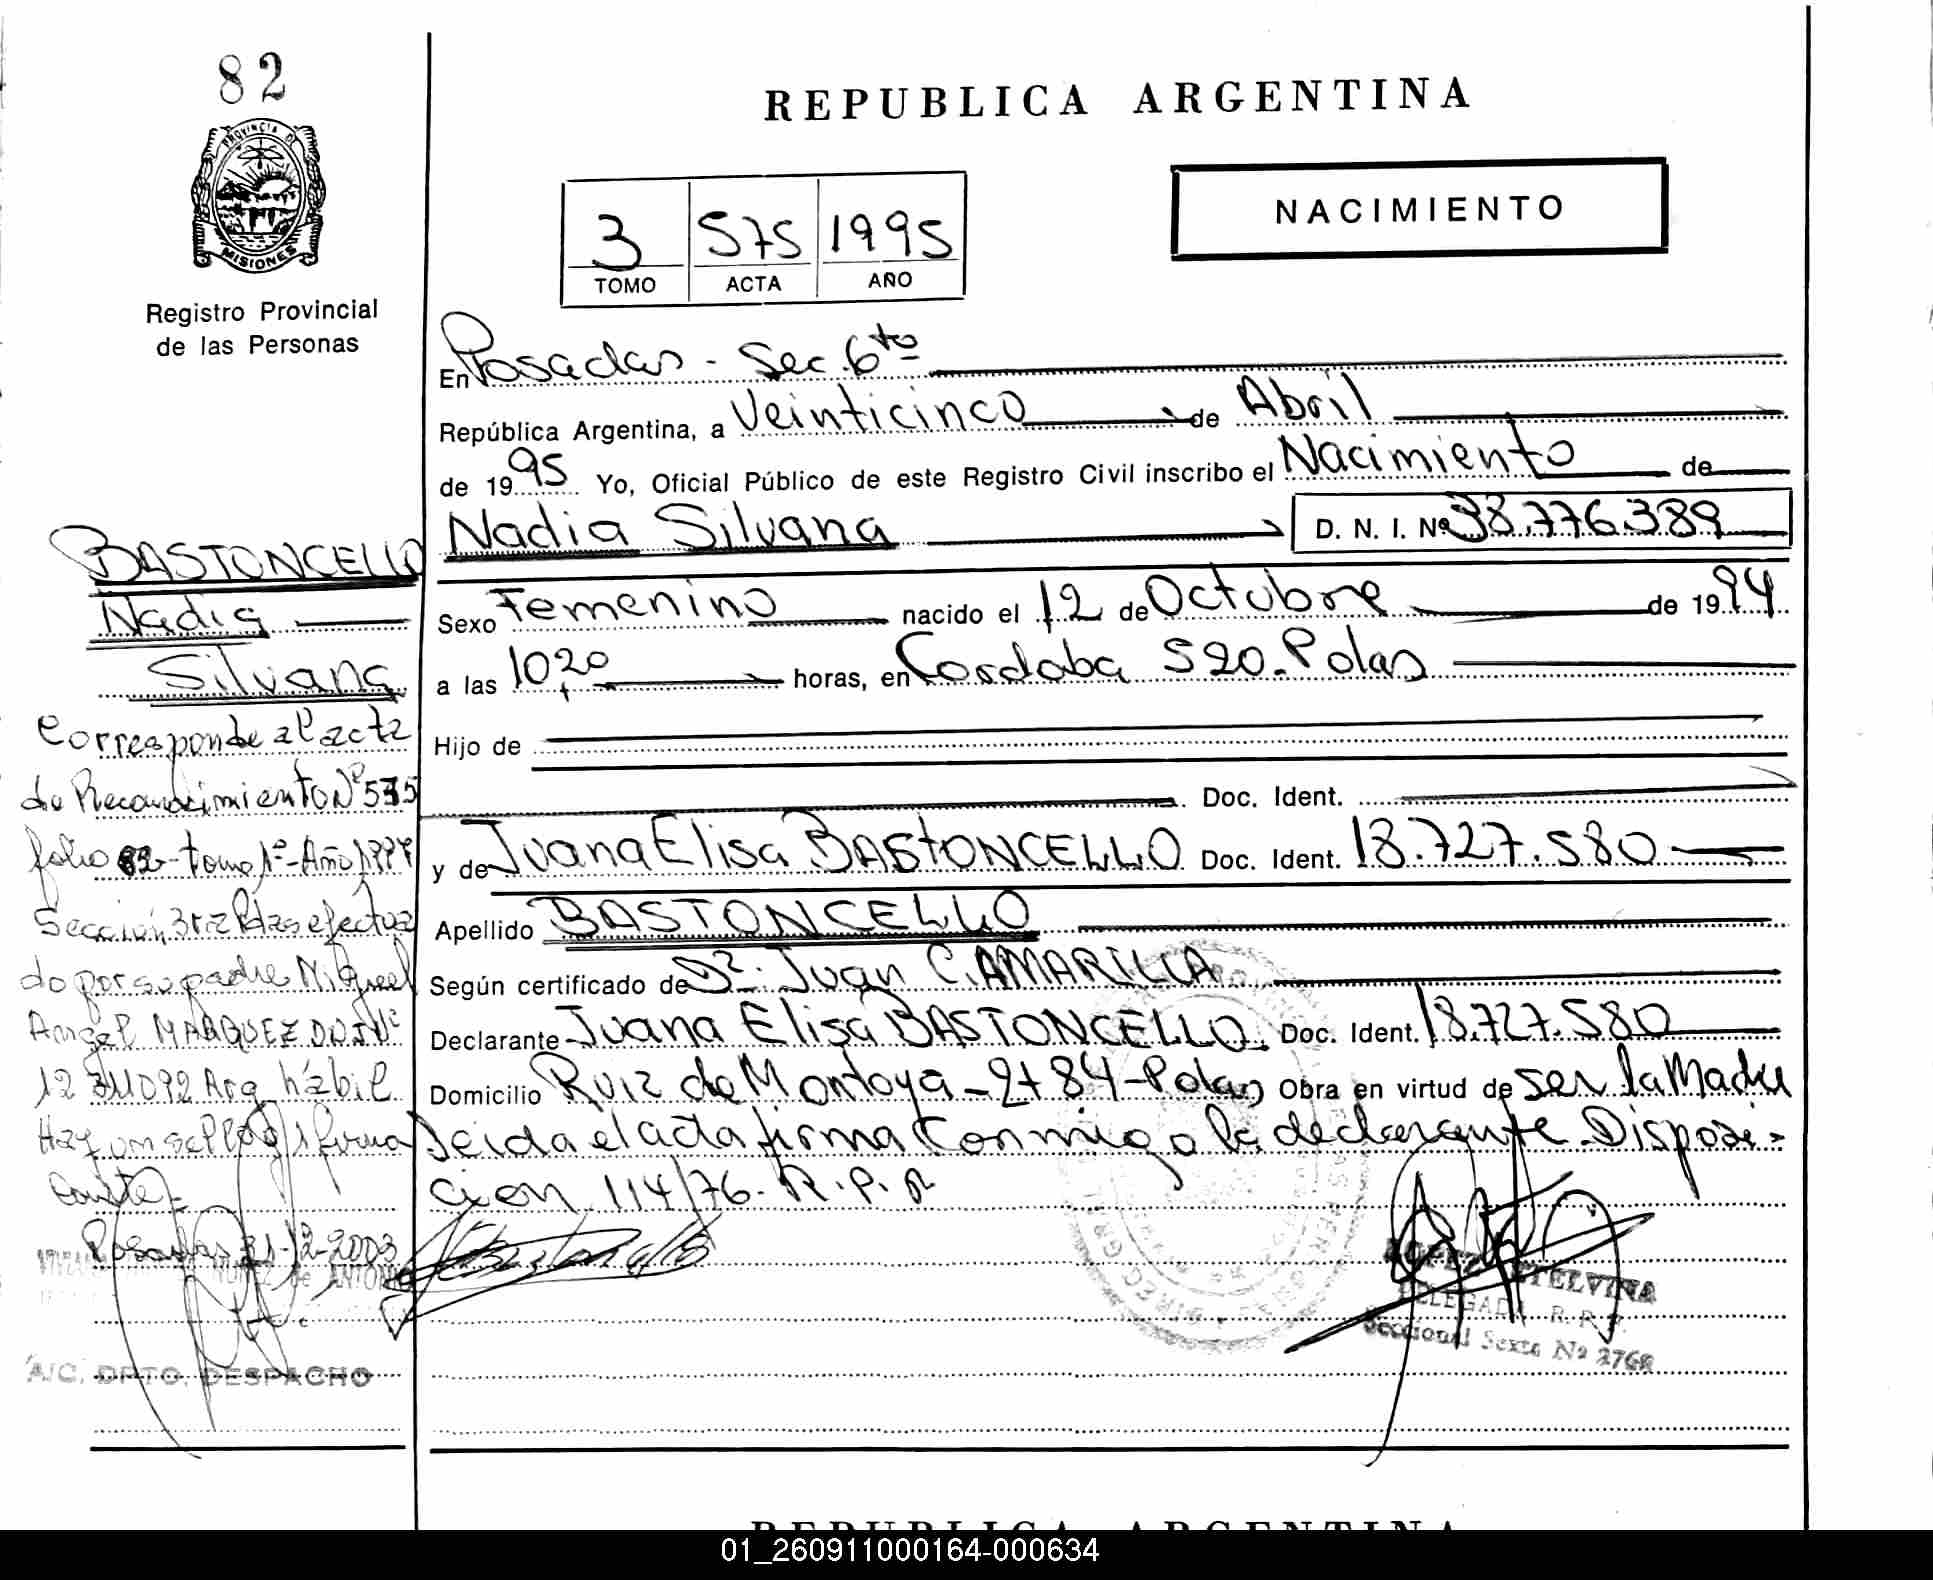 82
PROVINCIA DE
MISIONES
Registro Provincial
de las Personas
REPUBLICA ARGENTINA
NACIMIENTO
3 575 1995
TOMO ACTA AÑO
En Posadas - Sec. 6ta
República Argentina, a Veinticinco de Abril
de 1995 Yo, Oficial Público de este Registro Civil inscribo el Nacimiento de
Nadia Silvana D. N. I. Nº 38.776.389
Sexo Femenino nacido el 12 de Octubre de 1994
a las 10,20 horas, en Cordoba 520. Pdas
Hijo de
Doc. Ident.
y de Juana Elisa BASTONCELLO Doc. Ident. 18.727.580
Apellido BASTONCELLO
Según certificado de Dr. Juan C. AMARILLA
Declarante Juana Elisa BASTONCELLO. Doc. Ident. 18.727.580
Domicilio Ruiz de Montoya - 2784 - Pdas Obra en virtud de ser la Madre
Leida el acta firma conmigo la declarante. Disposi-
cion 114/76. R.P.P
LOPEZ ETELVINA
DELEGADA R. P. P.
Seccional Sexta Nº 2768
BASTONCELLO
Nadia
Silvana
Corresponde al acta
de Reconocimiento Nº 535
folio 82 - tomo 1º - Año 1997
Sección 3ra Pdas efectua
do por su padre Miguel
Angel MARQUEZ DNI Nº
12 311092 Arg. hábil
Hay un sello y 1 firma
Conste -
Posadas 31-12-2003
NUÑEZ de
A/C. DPTO. DESPACHO
REPUBLICA ARGENTINA
01_260911000164-000634